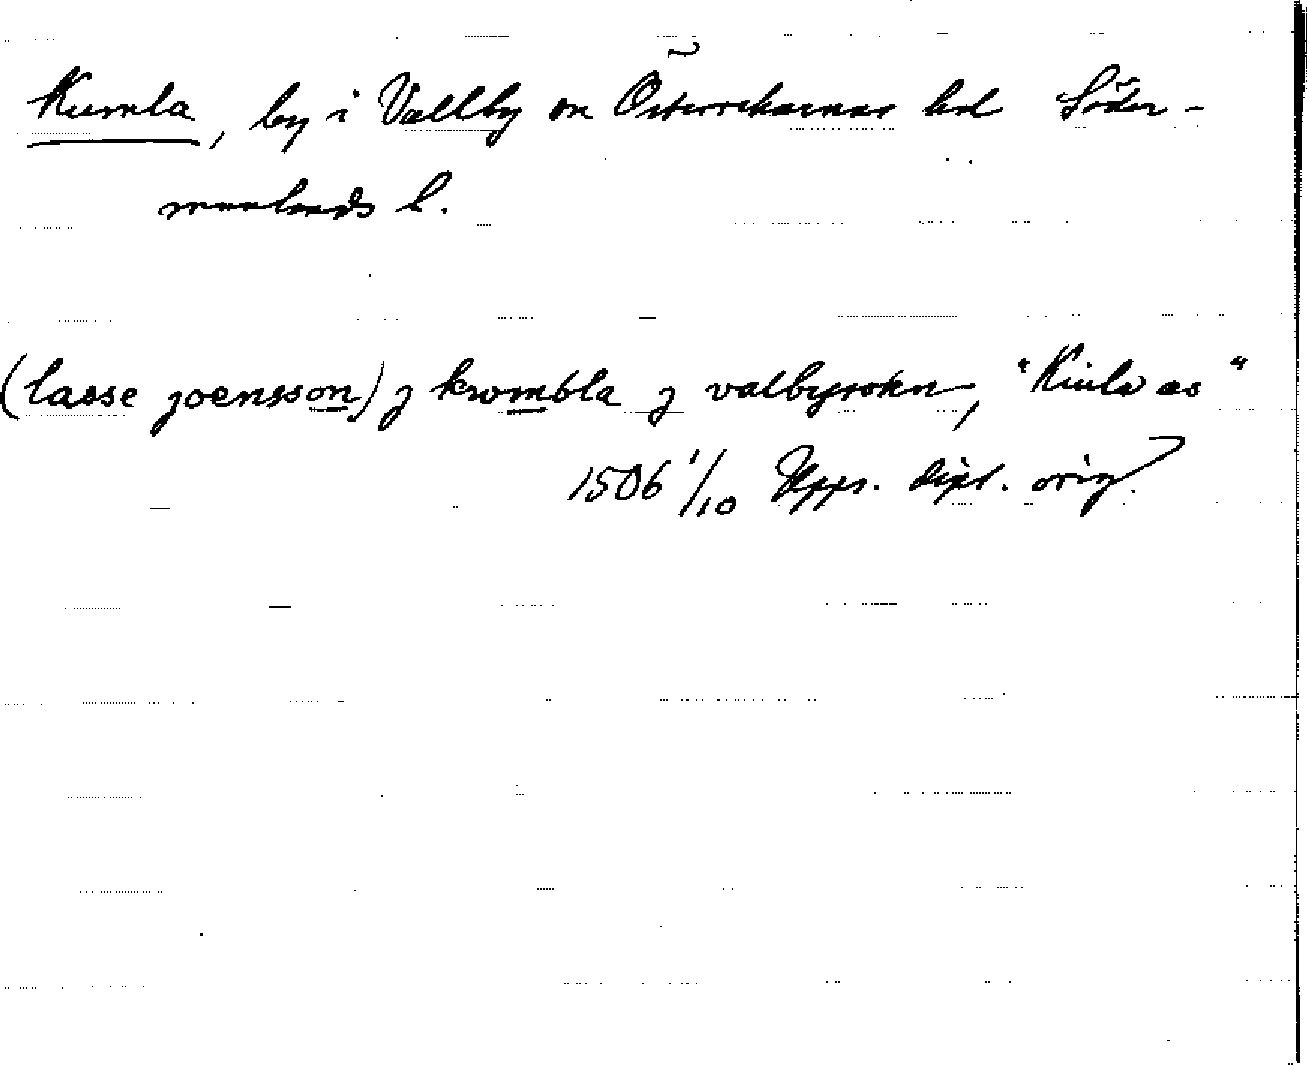 Kumla, by i Vallby sn Österrekarnas hd Söder-
manlands l.
(lasse joensson) j krombla j valbysokn, "Kiula as"
1506 1/10 Upps. dipl. orig.